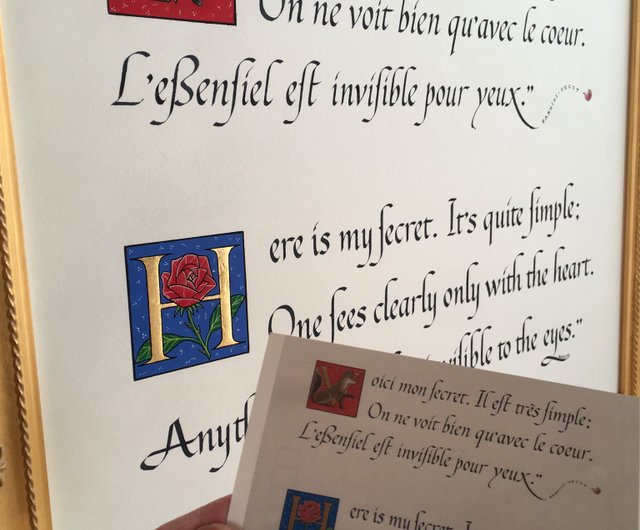 On ne voit bien qu'avec le coeur.
L'eßenſiel eſt inviſible pour yeux."
FECIT
Here is my ſecret. It's quite ſimple:
One ſees clearly only with the heart.
to the eyes."
Voici mon ſecret. Il eſt très ſimple:
On ne voit bien qu'avec le coeur.
L'eßenſiel eſt inviſible pour yeux."
Here is my ſecret.